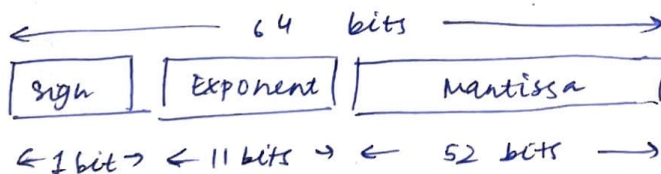 64 bits
sign Exponent Mantissa
1 bit 11 bits 52 bits